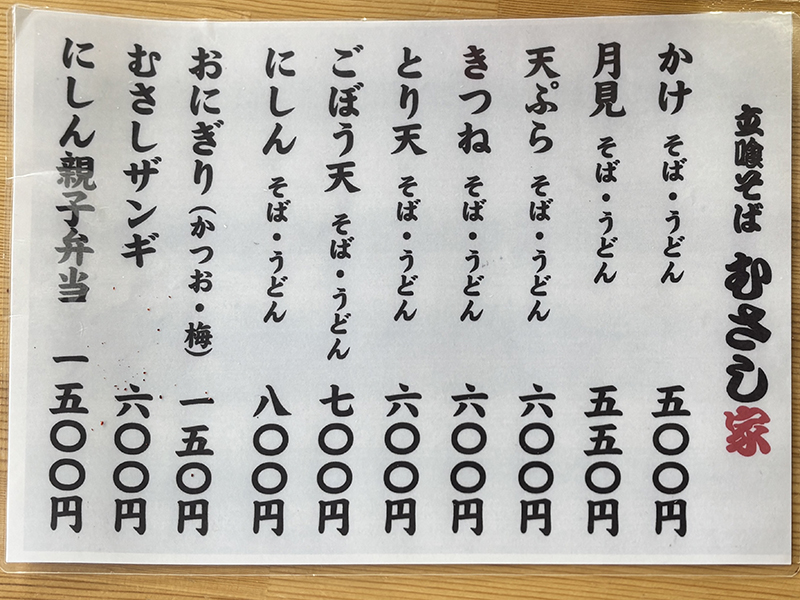 立喰そば むさし家
かけ そば・うどん 五〇〇円
月見 そば・うどん 五五〇円
天ぷら そば・うどん 六〇〇円
きつね そば・うどん 六〇〇円
とり天 そば・うどん 六〇〇円
ごぼう天 そば・うどん 七〇〇円
にしん そば・うどん 八〇〇円
おにぎり(かつお・梅) 一五〇円
むさしザンギ 六〇〇円
にしん親子弁当 一五〇〇円